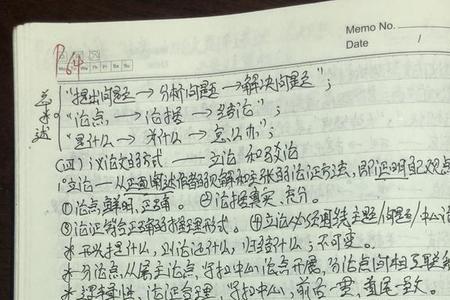 Memo No.
Date /
P64
Mo Tu We Th Fr Sa Su
"提出问题→分析问题→解决问题";
"论点→论据→结论";
"是什么→为什么→怎么办";
(四)议论文的方式——立论和驳论
1°立论——从正面阐述作者的见解和主张的论证方法,即证明自己观点
①论点鲜明、正确。②论据真实、充分。
③论证符合正确的推理形式。④立论必须围绕主题/问题/中心论
*开头提什么,则论证什么,归结什么;不可变。
*分论点从属主论点,紧扣中心论点开展,分论点间相互联系
*逻辑推进,论证合理,紧扣中心,前后一贯,首尾一致。